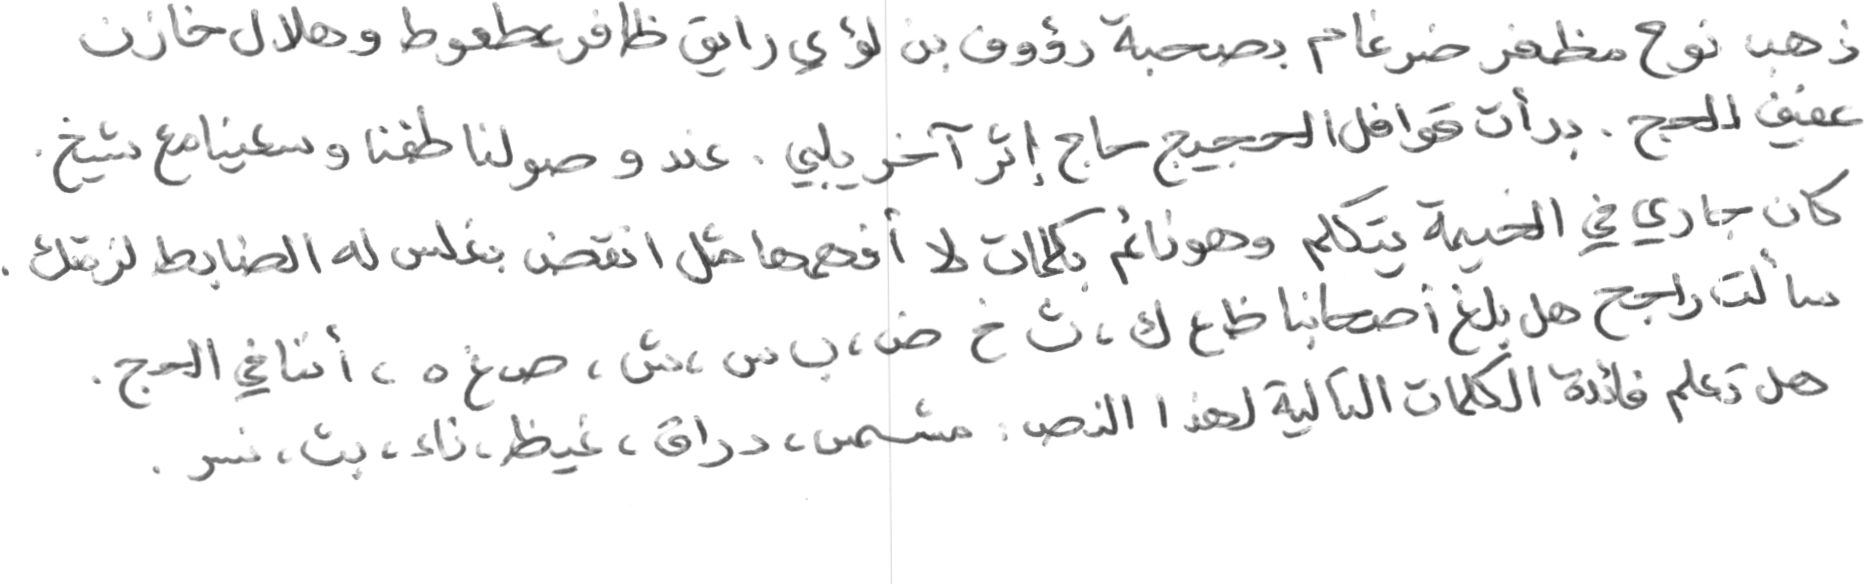 ذهب نوح مظفر ضرغام بصحبة رؤوف بن لؤي رايق ظافر عطعوط و هلال خازن
عفيف للحج . بدأت قوافل الحجيج حاج إثر آخر يلبي . عند و صولنا طفنا و سعينا مع شيخ .
كان جاري في الخيمة يتكلم وهو نائم بكلمات لا أفهمها مثل انقض بغلس له الضابط لزقتك .
سألت راجح هل بلغ أصحابنا ظ ع ك ، ث خ ض ، ب س ، ش ، ص غ ه ، أننا في الحج .
هل تعلم فائدة الكلمات التالية لهذا النص : مشمس ، دراق ، غيظ ، ناء ، بث ، نسر .